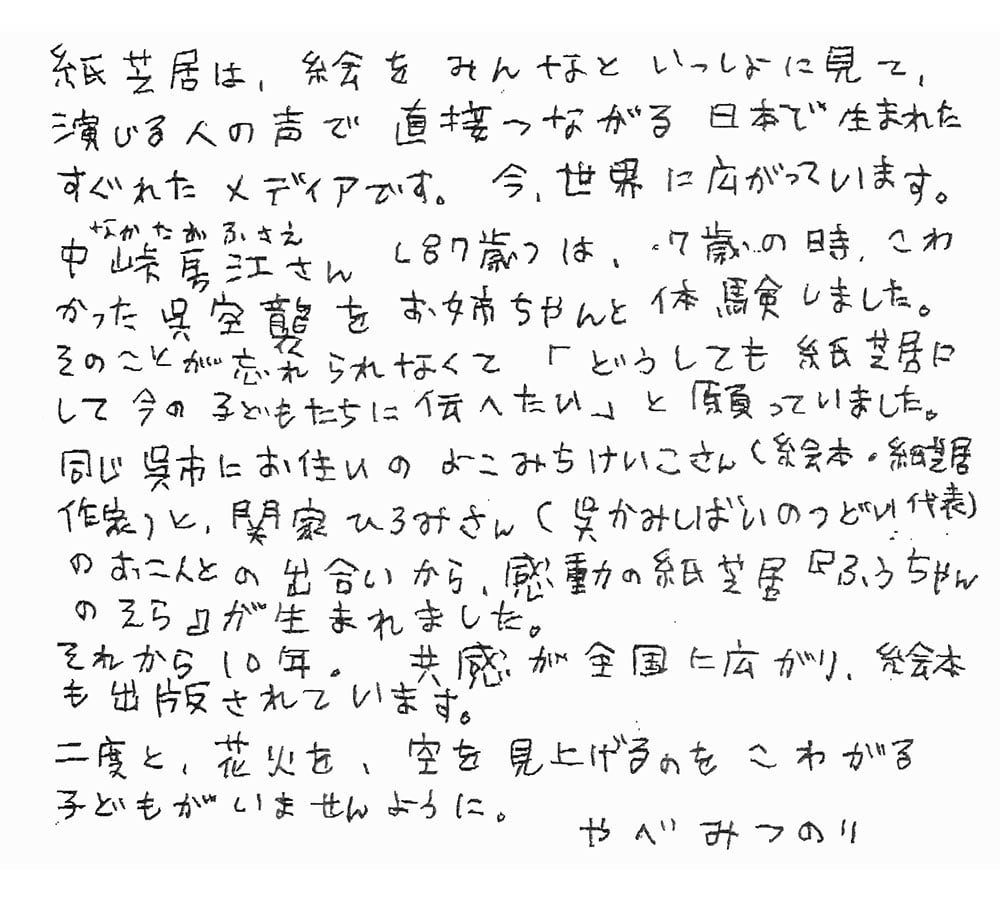 紙芝居は、絵をみんなといっしょに見て、
演じる人の声で直接つながる日本で生まれた
すぐれたメディアです。今、世界に広がっています。
なかたおふさえ
中峠房江さん（87歳）は、7歳の時、こわ
かった呉空襲をお姉ちゃんと体験しました。
そのことが忘れられなくて「どうしても紙芝居に
して今の子どもたちに伝へたい」と願っていました。
同じ呉市にお住いのよこみちけいこさん（絵本・紙芝居
作家）と、関家ひろみさん（呉かみしばいのつどい代表）
のお二人との出合いから、感動の紙芝居『ふうちゃん
のそら』が生まれました。
それから10年。共感が全国に広がり、絵本
も出版されています。
二度と、花火を、空を見上げるのをこわがる
子どもがいませんように。
やべみつのり